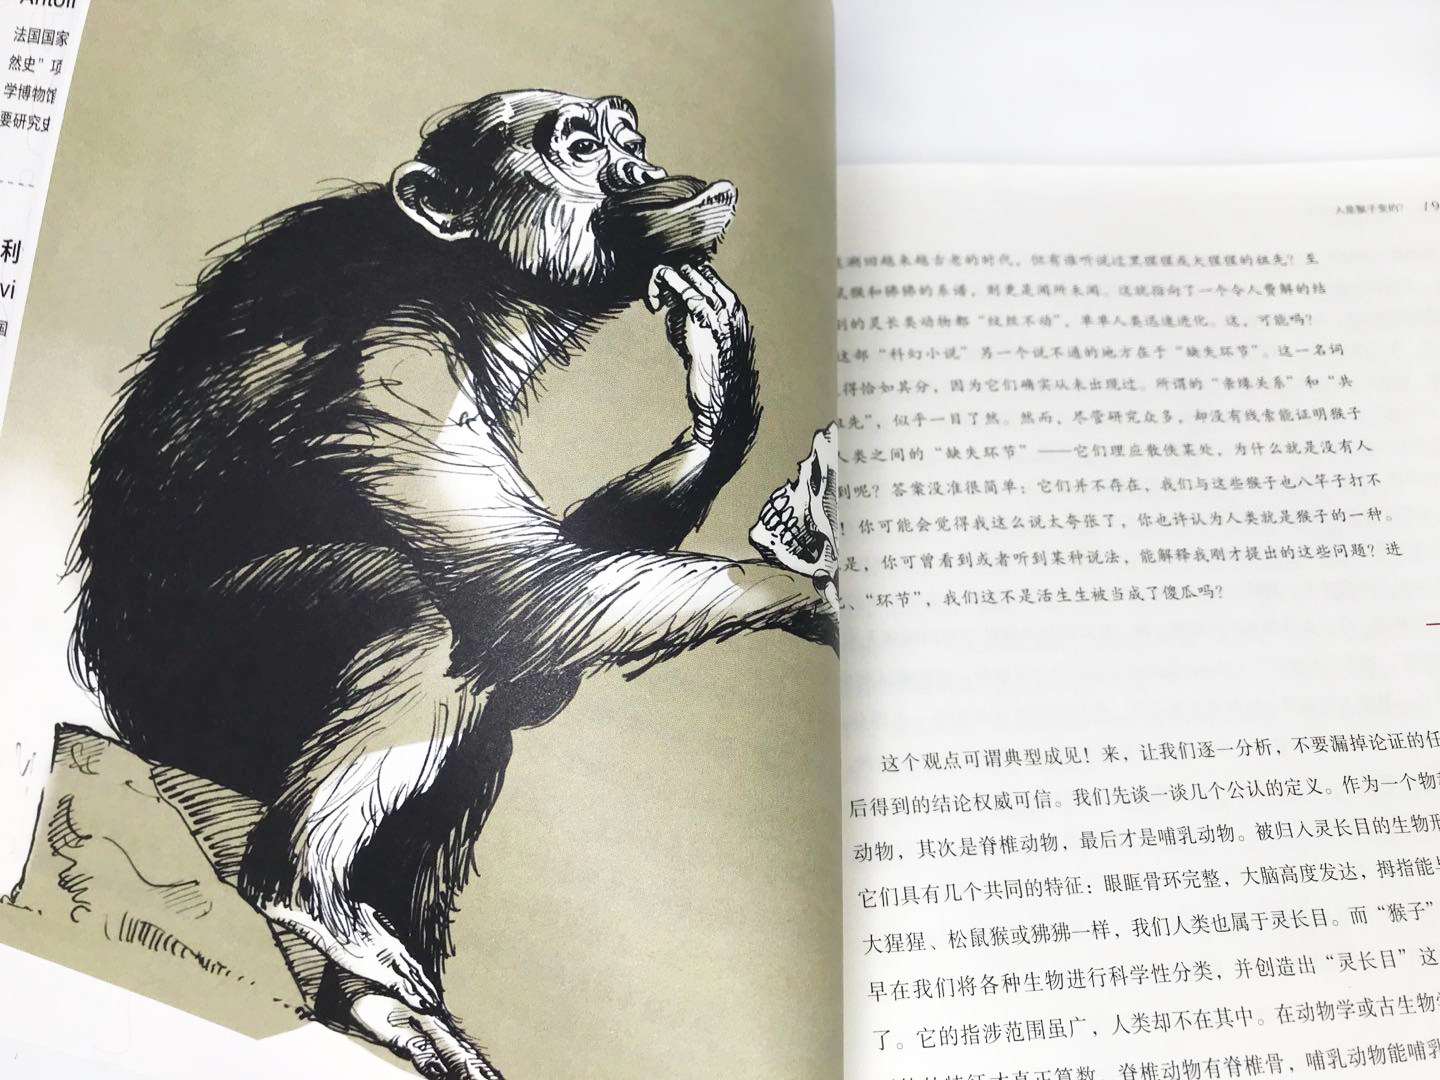 法国国家
然史”项
学博物馆
要研究史
利
vi
国
人是猴子变的？ 19
溯回越来越古老的时代，但有谁听说过黑猩猩或大猩猩的祖先？至
鼠猴和狒狒的系谱，则更是闻所未闻。这就指向了一个令人费解的结
到的灵长类动物都“纹丝不动”，单单人类迅速进化。这，可能吗？
这部“科幻小说”另一个说不通的地方在于“缺失环节”。这一名词
得恰如其分，因为它们确实从未出现过。所谓的“亲缘关系”和“共
祖先”，似乎一目了然。然而，尽管研究众多，却没有线索能证明猴子
人类之间的“缺失环节”——它们理应散佚某处，为什么就是没有人
到呢？答案没准很简单：它们并不存在，我们与这些猴子也八竿子打不
！你可能会觉得我这么说太夸张了，你也许认为人类就是猴子的一种。
是，你可曾看到或者听到某种说法，能解释我刚才提出的这些问题？进
、“环节”，我们这不是活生生被当成了傻瓜吗？
这个观点可谓典型成见！来，让我们逐一分析，不要漏掉论证的任
后得到的结论权威可信。我们先谈一谈几个公认的定义。作为一个物种
动物，其次是脊椎动物，最后才是哺乳动物。被归入灵长目的生物形
它们具有几个共同的特征：眼眶骨环完整，大脑高度发达，拇指能与
大猩猩、松鼠猴或狒狒一样，我们人类也属于灵长目。而“猴子”
早在我们将各种生物进行科学性分类，并创造出“灵长目”这
了。它的指涉范围虽广，人类却不在其中。在动物学或古生物学
的特征才真正算数。脊椎动物有脊椎骨，哺乳动物能哺乳